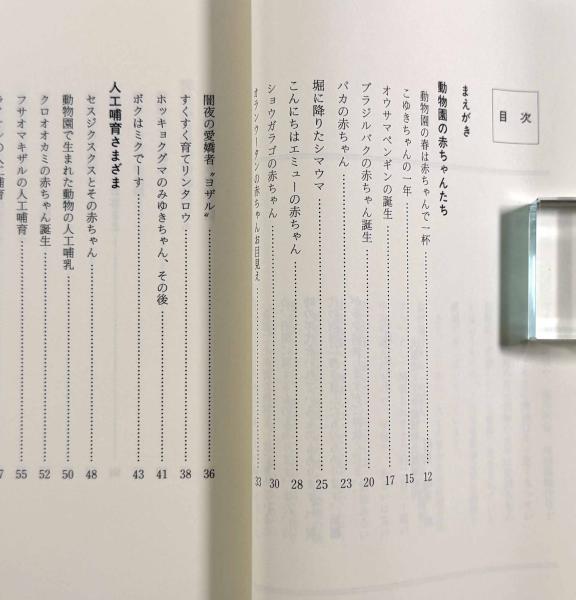 目次
まえがき
動物園の赤ちゃんたち
動物園の春は赤ちゃんで一杯 12
こゆきちゃんの一年 15
オウサマペンギンの誕生 17
ブラジルバクの赤ちゃん誕生 20
パカの赤ちゃん 23
堀に降りたシマウマ 25
こんにちはエミューの赤ちゃん 28
ショウガラゴの赤ちゃん 30
オランウータンの赤ちゃんお目見え 33
闇夜の愛嬌者〝ヨザル〟 36
すくすく育てリンタロウ 38
ホッキョクグマのみゆきちゃん、その後 41
ボクはミクでーす 43
人工哺育さまざま
セスジクスクスとその赤ちゃん 48
動物園で生まれた動物の人工哺乳 50
クロオオカミの赤ちゃん誕生 52
フサオマキザルの人工哺育 55
の人工哺育